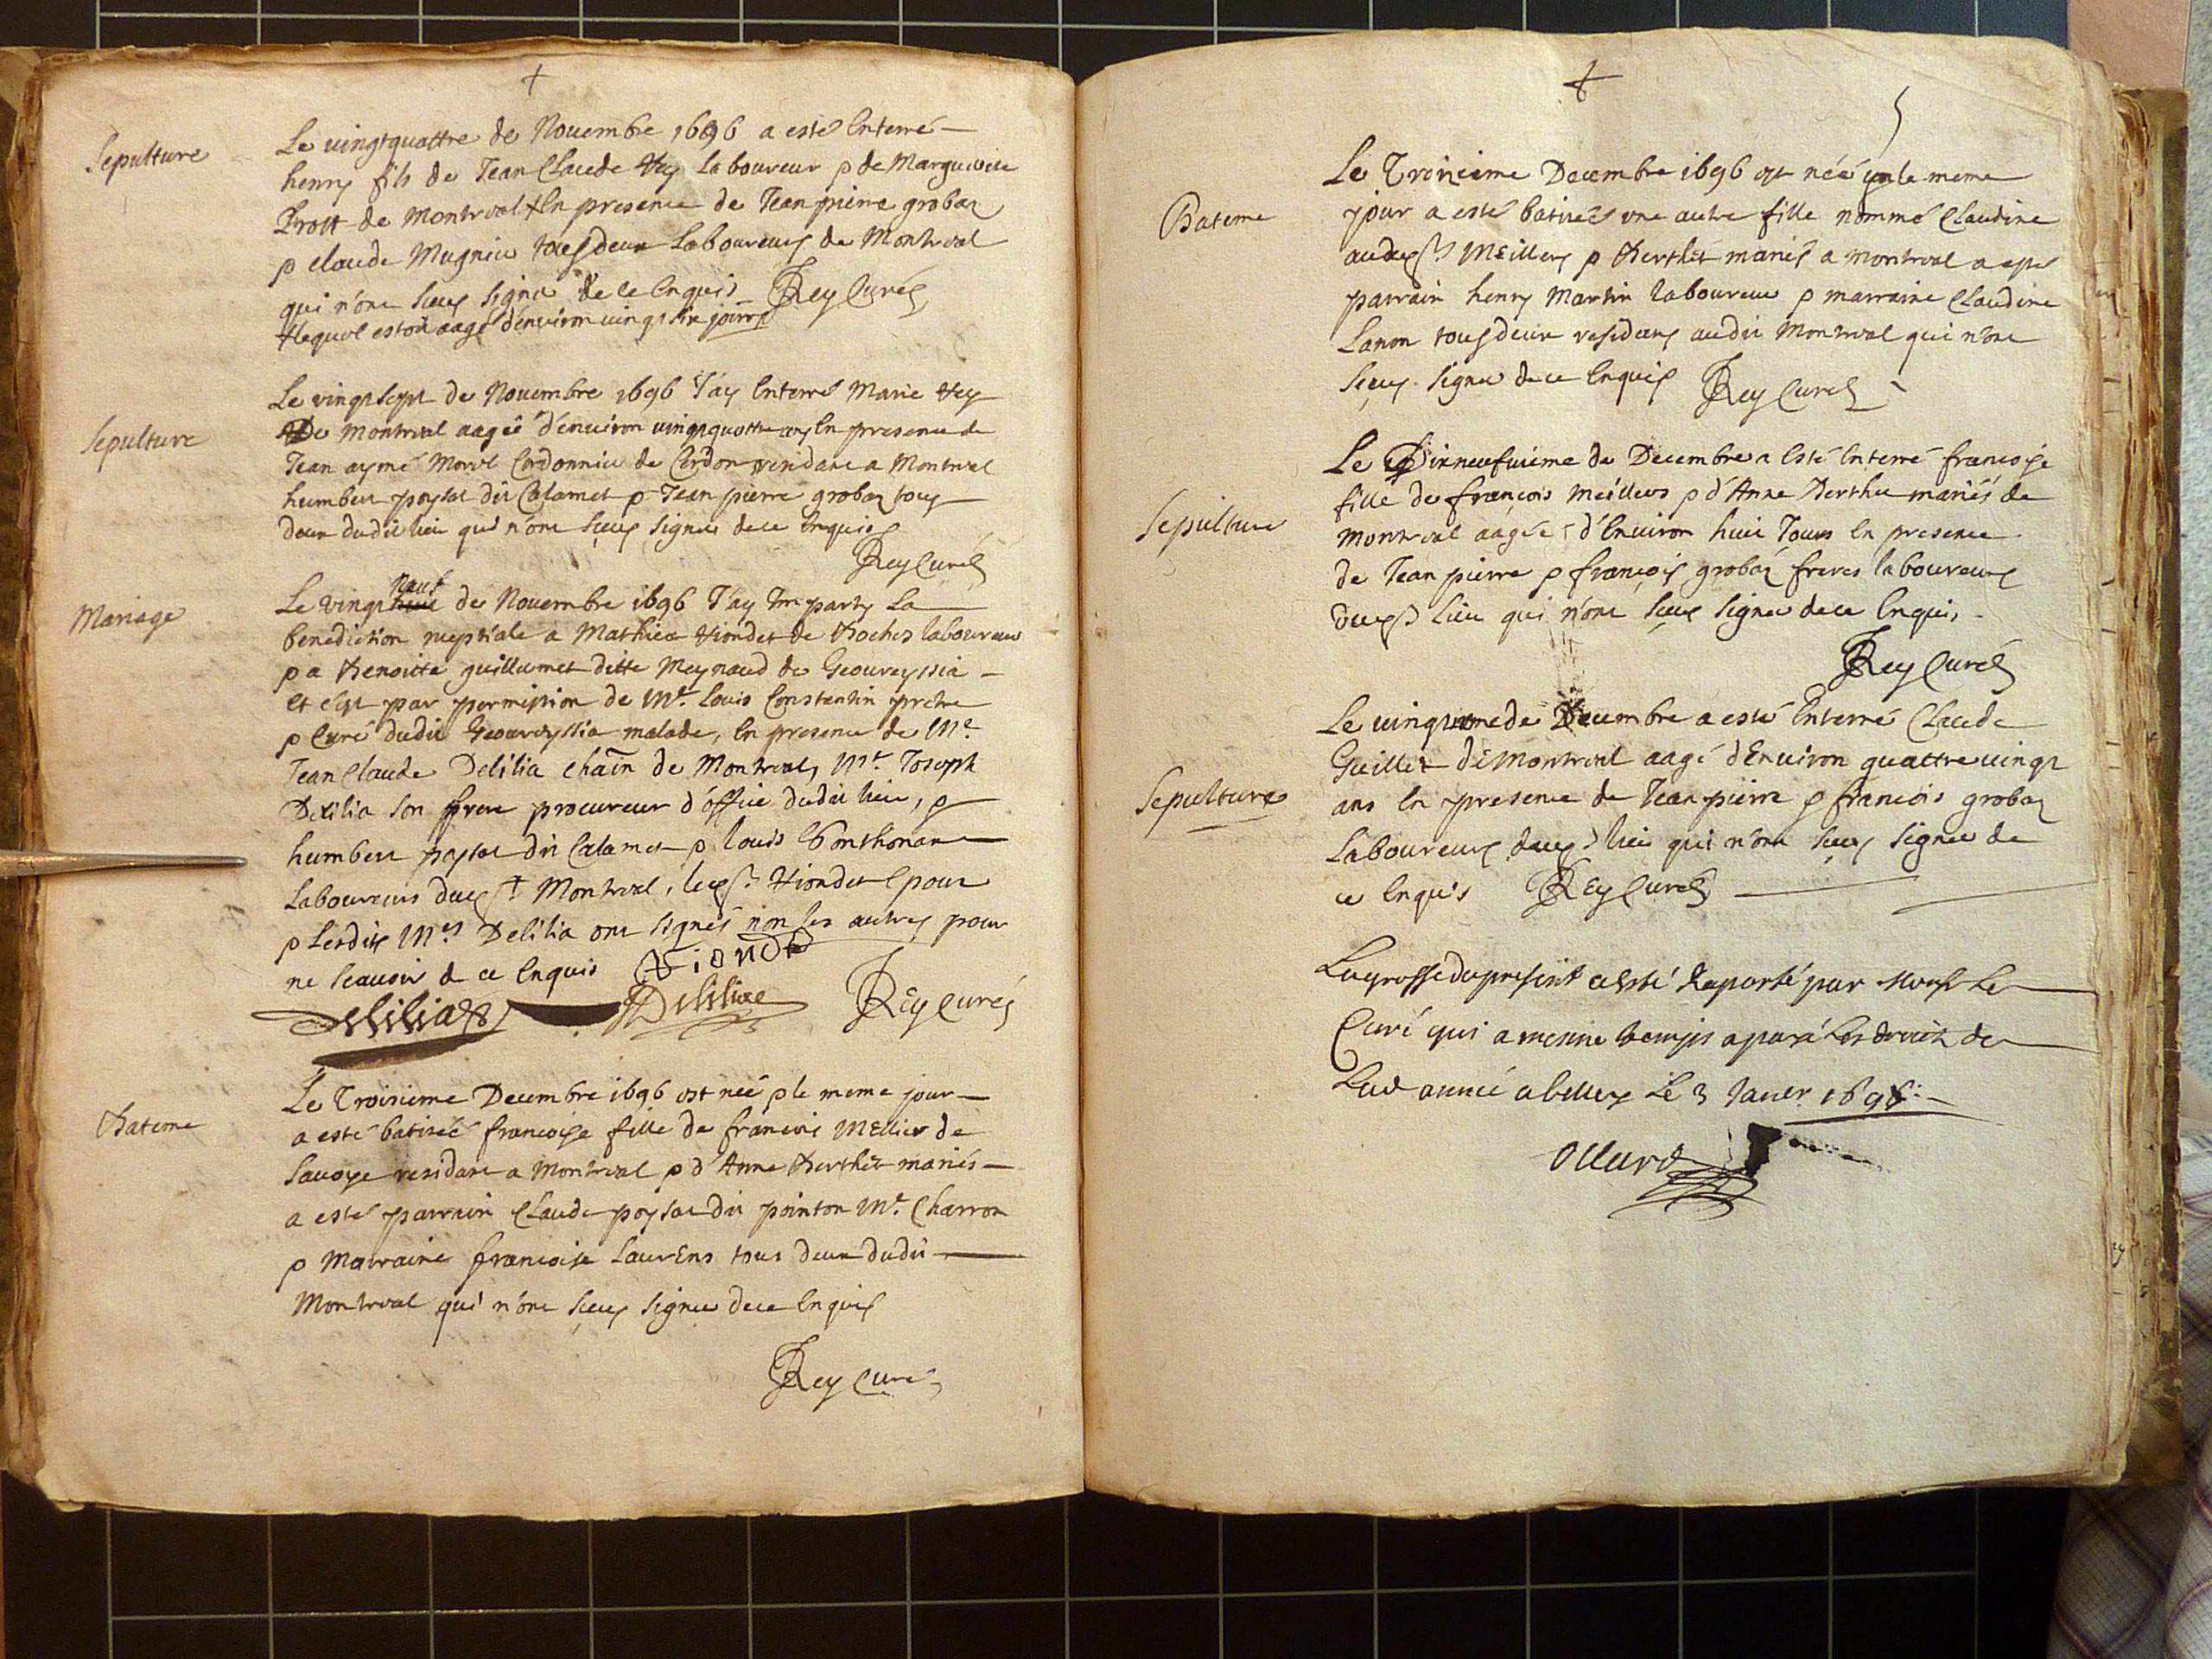 Sepulture
Le vingtquattre de Nouembre 1696 a esté Enterré
henry fils de Jean Claude Vey laboureur & de Marguerite
Prost de Montreal + En presence de Jean pierre groboz
& claude Mugnier tousdeux Laboureurs de Montreal
qui n'ont sceus signer de ce Enquis Rey Curé
+ lequel estoit aagé d'enuiron vingt six jours
Sepulture
Le vingt sept de Nouembre 1696 J'ay Enterré Marie Vey
De Montreal aagée d'enuiron vingtquattre ans En presence de
Jean aymé Morel Cordonnier de Cerdon residant a Montreal
humbert poysat dit Calamet & Jean pierre groboz tous
deux dudit lieu qui n'ont sceus signer de ce Enquis
Rey Curé
Mariage
neuf
Le vingt huit de Nouembre 1696 J'ay Imparty La
benediction nuptiale a Mathieu Viondet de Roches laboureur
& a Benoitte guillumet ditte Meynaud de Geoureyssia
et c'est par permission de Mre Louis Constantin pretre
& Curé dudit Geoureyssia malade, En presence de Me
Jean Claude Delilia chãin de Montreal, Mre Joseph
Delilia son frere procureur d'office dudit lieu, &
humbert poysat dit Calamet & louis
Laboureurs dud. Montreal, led. Viondet Epoux
& Lesdits Mes Delilia ont signés non les autres pour
ne scauoir de ce Enquis Viondet
Delilia Delilia Rey Curé
Bateme
Le Troisieme Decembre 1696 est née & le meme jour
a esté batisée francoise fille de francois Mellier de
Sauoye residant a Montreal & d'Anne Berthet mariés
a esté parrain Claude poysat dit pointon Me Charron
& Marraine francoise Laurens tous deux dudit
Montreal qui n'ont sceus signer de ce Enquis
Rey Curé
Bateme
Le Troisieme Decembre 1696 est née & le meme
jour a esté batisée une autre fille nommé Claudine
aud. Meillers & Berthet mariés a Montreal a esté
parrain henry Martin laboureur & marraine Claudine
Lanon tousdeux residans audit Montreal qui n'ont
sceus signer de ce Enquis Rey Curé
Sepulture
Le Dixneufuieme de Decembre a Esté Enterré francoise
fille de françois Meillers & d'Anne Berthet mariés de
Montreal aagée d'Enuiron huit Jours En presence
de Jean pierre & françois groboz freres laboureurs
dud. Lieu qui n'ont sceus signer de ce Enquis
Rey Curé
Sepulture
Le vingt une de Decembre a esté Enterré Claude
Guillet de Montreal aagé d'Enuiron quattre vingt
ans En presence de Jean pierre & francois groboz
Laboureurs dud. lieu qui n'ont sceus signer de
ce Enquis Rey Curé
La grosse du present a esté Raporté par Monsr Le
Curé qui a mesme temps a payé Les droits de
Lad année a belley Le 3 Janer 169
Ollard